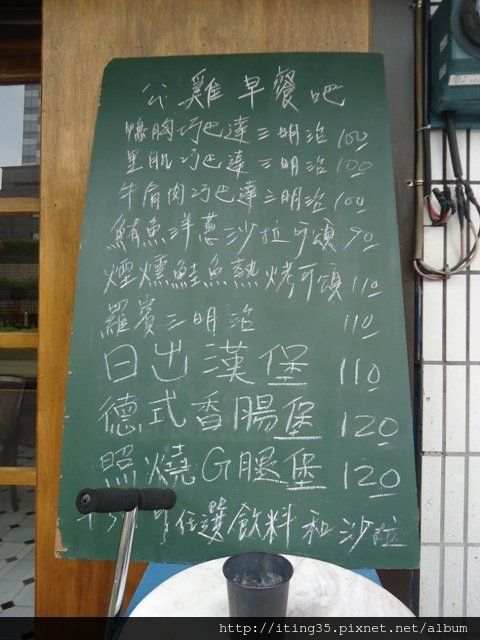 公雞早餐吧
鴨胸巧巴達三明治 100
里肌巧巴達三明治 100
牛肩肉巧巴達三明治 100
鮪魚洋蔥沙拉可頌 90
煙燻鮭魚熱烤可頌 110
羅賓三明治 110
日出漢堡 110
德式香腸堡 120
照燒G腿堡 120
任選飲料和沙拉
http://iting35.pixnet.net/album